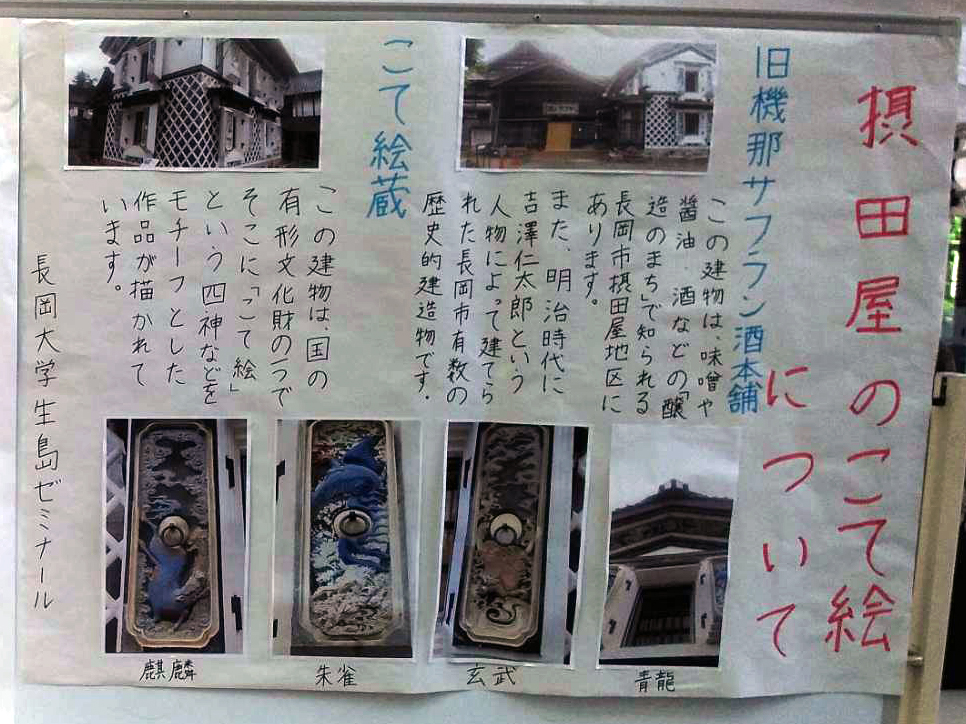 摂田屋のこて絵
について
旧機那サフラン酒本舗
この建物は、味噌や
醤油・酒などの「醸
造のまち」で知られる
長岡市摂田屋地区に
あります。
また、明治時代に
吉澤仁太郎という
人物によって建てら
れた長岡市有数の
歴史的建造物です。
こて絵蔵
この建物は、国の
有形文化財の1つで
そこに「こて絵」
という四神などを
モチーフとした
作品が描かれて
います。
青龍
玄武
朱雀
麒麟
長岡大学生島ゼミナール